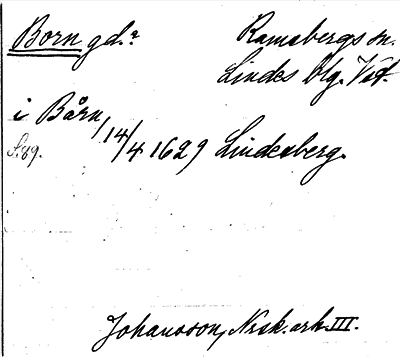 Born gd.ʳ Ramsbergs sn.
Lindes blg. Vstm.
i Bårn, 14/4 1629 Lindesberg.
S. 89.
Johansson, Nrsk. ark. III.